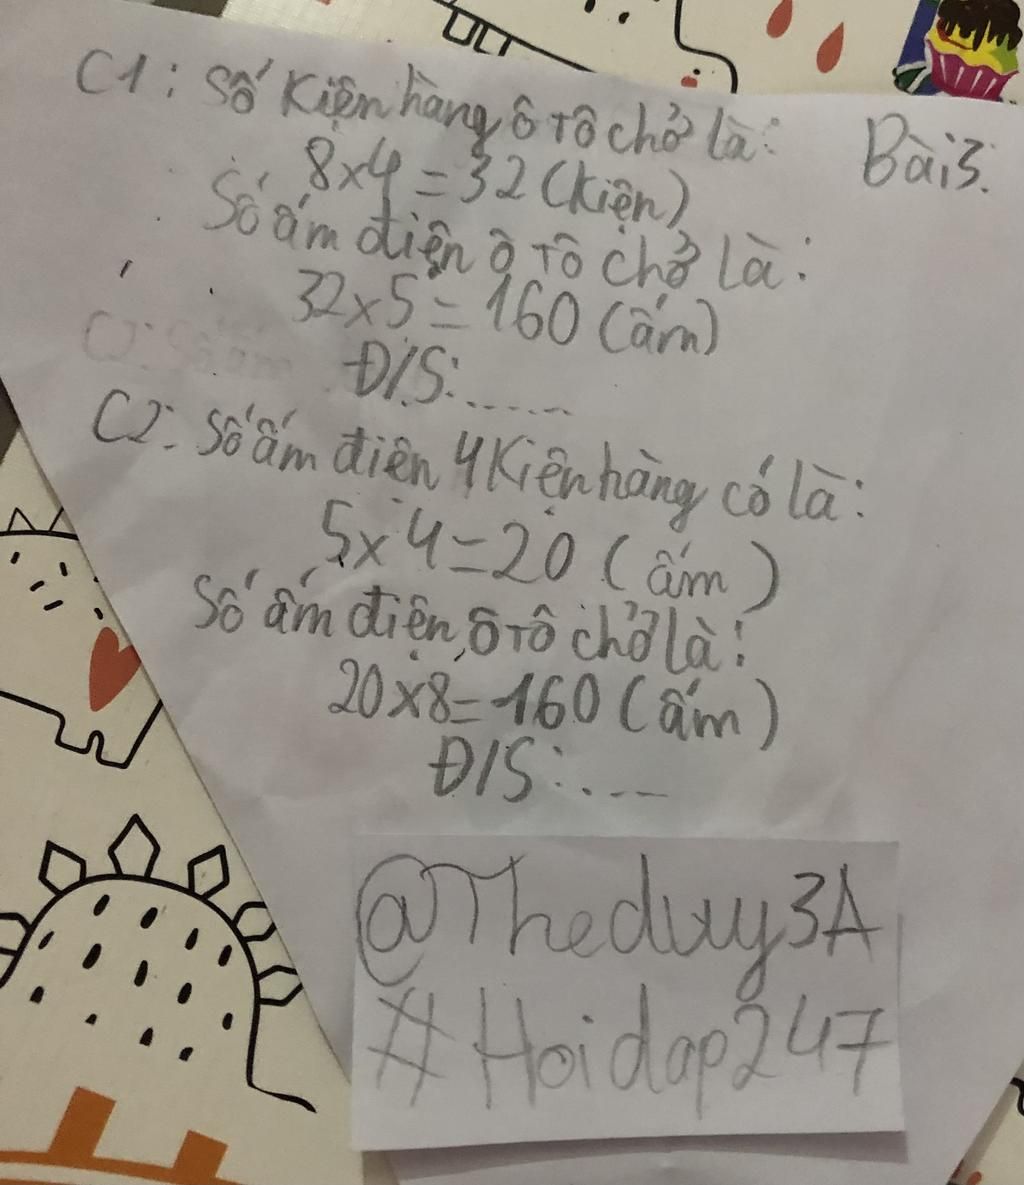 Bài 3:
C1: Số Kiện hàng ô tô chở là:
8x4=32 (Kiện)
Số ấm điện ô tô chở là:
32x5=160 (ấm)
Đ/S:......
C2: Số ấm điên 4 Kiện hàng có là:
5x4=20 (ấm)
Số ấm điện ô tô chở là:
20x8=160 (ấm)
Đ/S:....
@Theduy3A
#Hoidap247